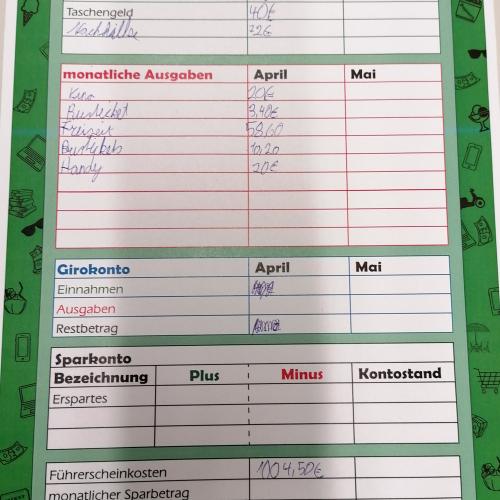 Taschengeld 40€
Nachhilfe 72€
monatliche Ausgaben April Mai
Kino 20€
Busticket 3,40€
Freizeit 58,60
Bustickets 10,20
Handy 20€
Girokonto April Mai
Einnahmen
Ausgaben
Restbetrag
Sparkonto
Bezeichnung Plus Minus Kontostand
Erspartes
Führerscheinkosten 1004,50€
monatlicher Sparbetrag